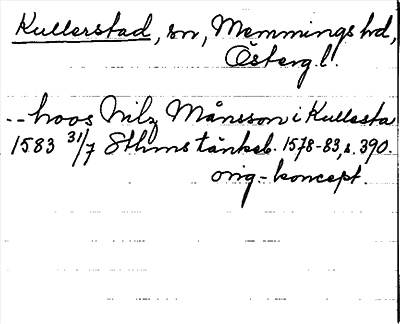 Kullerstad, sn, Memmings hd,
Österg.l.
-- hoos Nilz Månsson i Kullesta
1583 31/7 Sthms tänkeb. 1578-83, s. 390.
orig.-koncept.